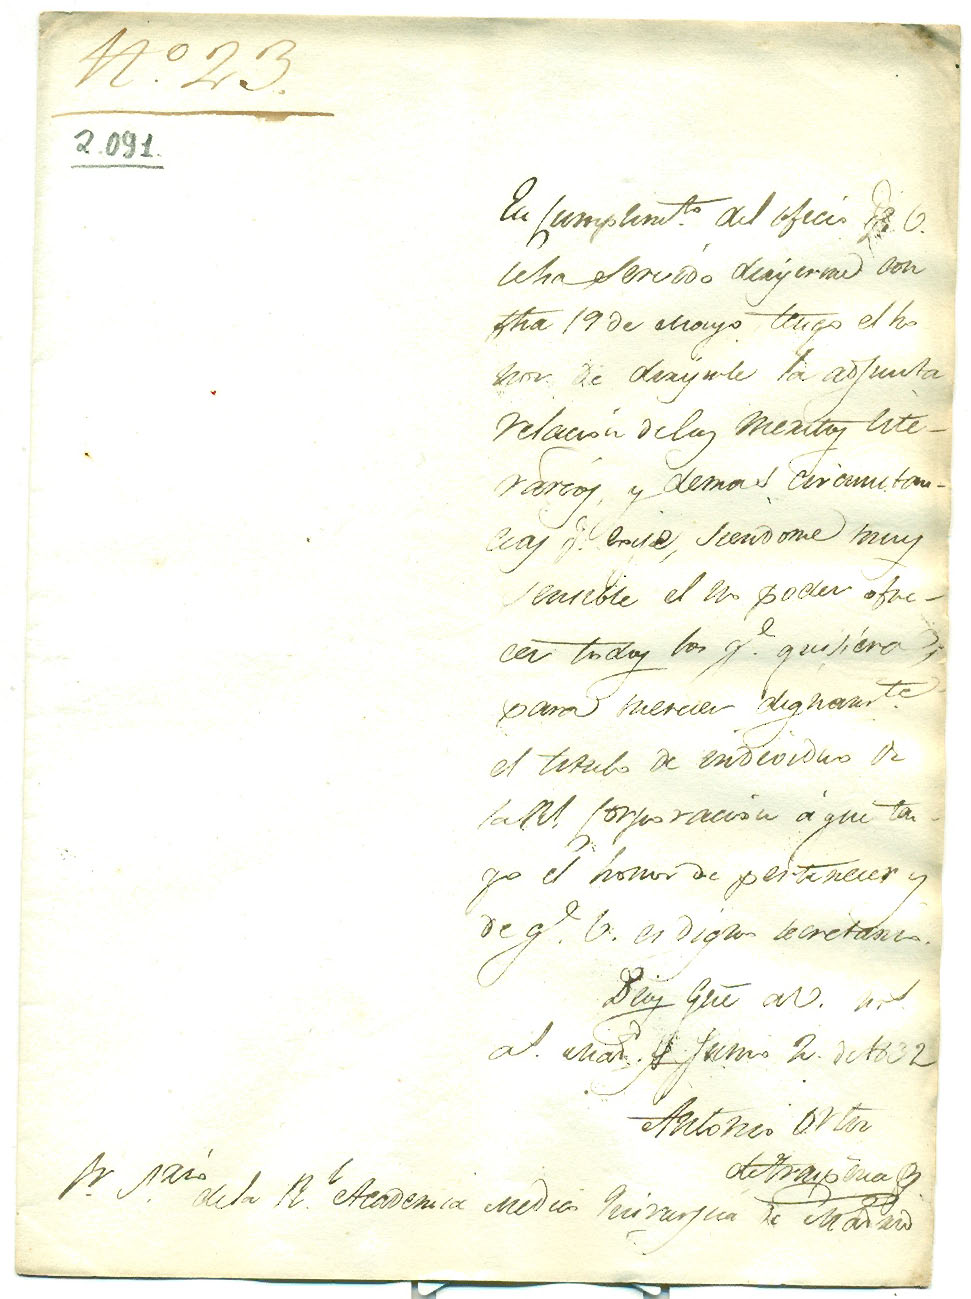 Nº. 23.
2.091.
En cumplimto. del oficio V.
se ha servido dirijirme con
fha 19 de Mayo, tengo el ho
nor de dirijirle la adjunta
relación de los meritos lite-
rarios, y demas circunstan-
cias qe. , siendome muy
sensible el no poder ofre-
cer todos los qe. quisiera
para merecer dignamte.
el titulo de individuo de
la Rl. Corporación á que ten-
go el honor de pertenecer y
de qe. V. es digno secretario.
Dios gue á V. ms.
as. Madd. y Junio 2. de 1832
Antonio Ortiz
de
Sr. Srio de la Rl. Academia Medico Quirurgica de Madrid